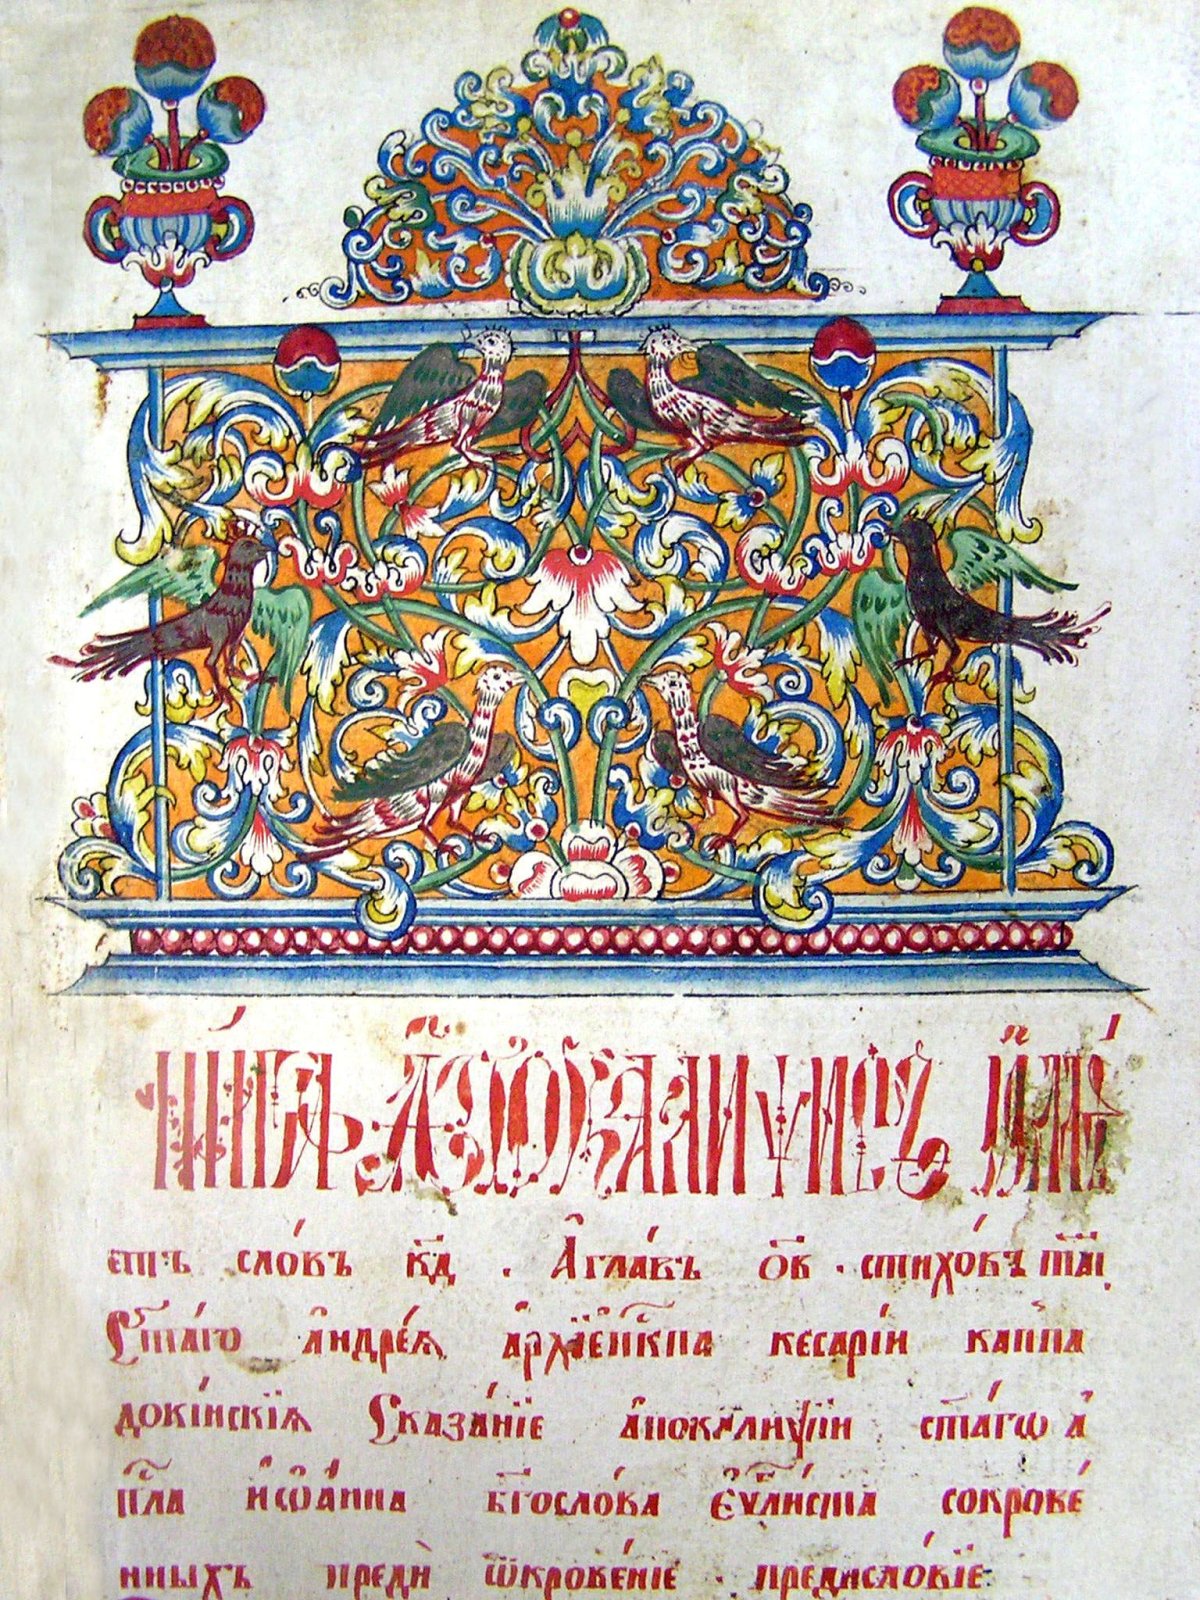 Кни́га А҆по́калиѱисъ, и҆мѣ́
етъ сло́въ к҃д . А҆ гла́въ о҃в . стихо́въ
Ст҃а́гѡ а҆ндре́а а҆рхїеп҇кпа кесарі́и каппа
докі́искїѧ Сказа́нїе а҆покалиѱіи ст҃а́гѡ а҆
п҇сла і҆ѡа́нна бг҃осло́ва є҆ѵ҃листа сокрове́
нныхъ преди ѿкрове́нїе . предисло́вїе